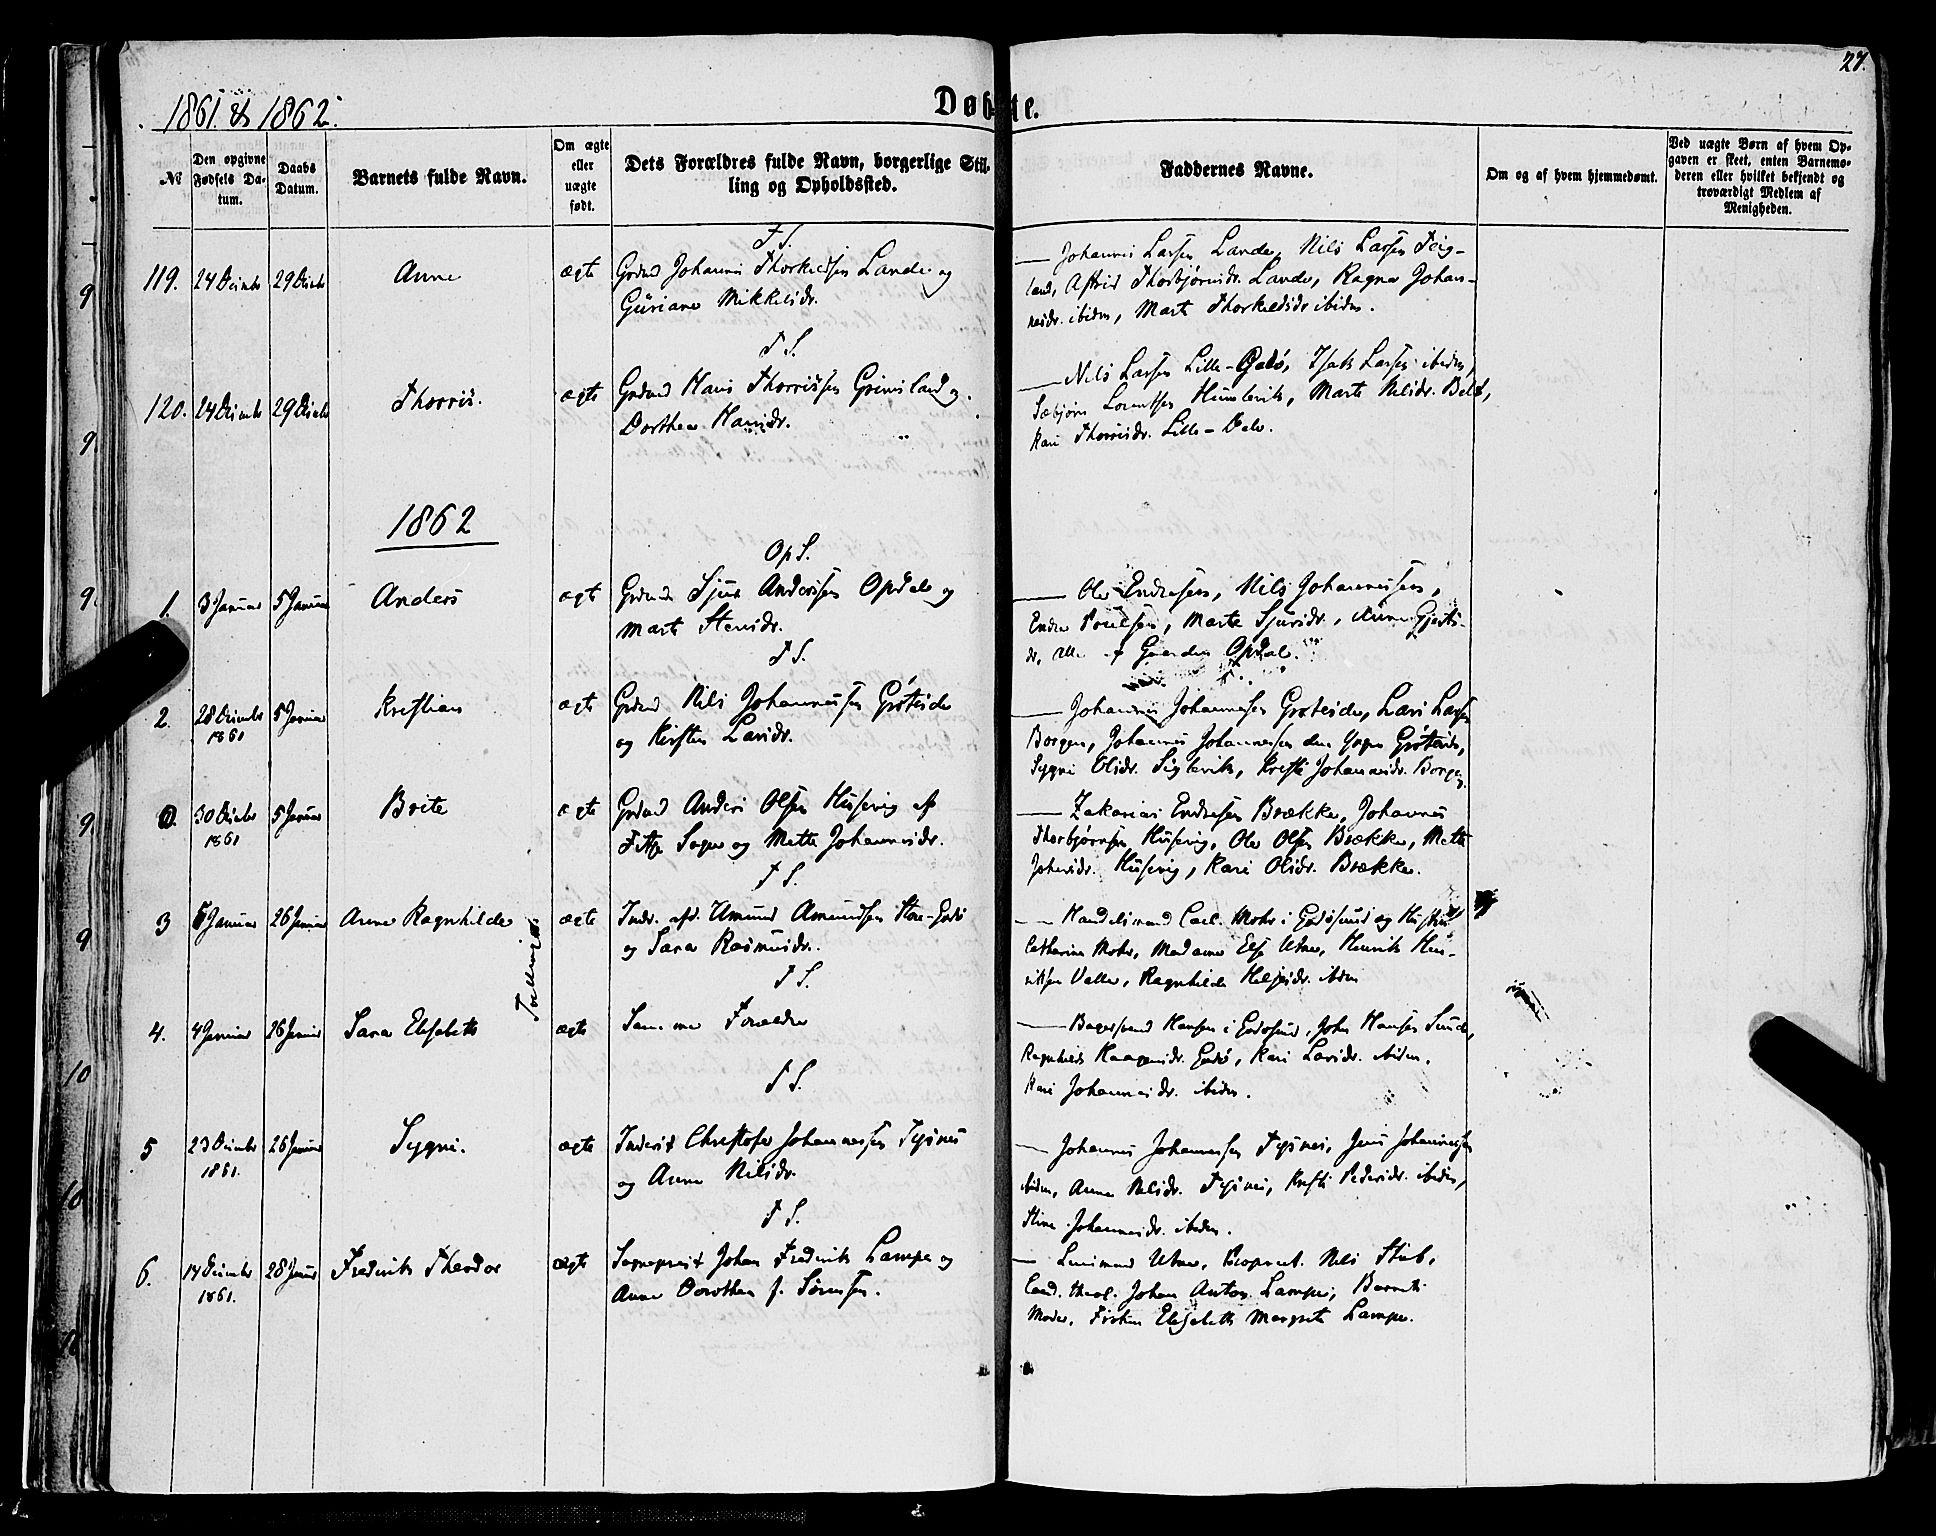 27.
1861 & 1862.
Døbte.
№
Den opgivne Fødsels Datum.
Daabs Datum.
Barnets fulde Navn.
Om ægte eller uægte født.
Dets Forældres fulde Navn, borgerlige Stilling og Opholdssted.
Faddernes Navne.
Om og af hvem hjemmedømt.
Ved uægte Børn af hvem Opgaven er skeet, enten Barnemoderen eller hvilket bekjendt og troværdigt Medlem af Menigheden.
T. S.
119. 24 Decembr 29 Decbr Anne ægte Grdmd Johannes Thorkildsen Lande og
Guriane Mikkelsdr.
Johannes Larsen Lande, Nils Larsen Teig-
land, Astrid Thorbjørnsdr. Lande, Ragna Johan-
nesdr. ibidem, Marte Thorkildsdr ibidem.
T. S.
120. 24 Decembr 29 Decbr Thorris. ægte Grdmd Hans Thorrissen Grimsland og
Dorthea Hansdr.
Nils Larsen Lille-Godø, Isak Larsen ibidem,
Sæbjørn Lorentsen Humlevik, Marte Nilsdr.
Kari Thorrisdr. Lille-
1862
Op S.
1. 3 Januar 5 Januar Anders ægte Grdmd Sjur Anderssen Opdal og
Marte Stensdr.
Ole Endresen, Nils Johannessen,
Endre Poulsen, Marte Sjursdr., Anna Gjerts-
dr, alle af Gaarden Opdal.
T S.
2. 28 Decembr 1861 5 Januar Kristian ægte Grdmd Nils Johannessen Grøteide
og Kirsten Larsdr.
Johannes Johannessen Grøteide, Lars Larsen
Borgen, Johannes Johannessen den Yngre Grøteide,
Sygni Olsdr. Siglevik, Kristi Johannesdr. Borgen
0. 30 Decembr 1861 5 Januar Brite ægte Grdmd Anders Olsen Husevig af
Fitje Sogn og Mette Johannesdr.
Zakarias Endresen Brække, Johannes
Thorbjørnsen Husevig, Ole Olsen Brække, Mette
Johansdr. Husevig, Kari Olsdr. Brække.
T S.
3 Januar 26 Januar Anne Ragnhilde ægte Indr. Amund Amundsen Store-Godø
og Sara Rasmusdr.
Handelsmand Carl Mohr i Godøsund og Hustru
Catharina Mohr, Madame Else Utne, Henrik Hen-
riksen Valle, Ragnhilde Helgesdr. ibidem
Tvillinger
T S.
4. 4 Januar 26 Januar Sara Elisabeth ægte Samme Forældre
Hansen i Godøsund, John Hansen Sunde,
Ragnhilde Haagensdr. Godø, Kari Larsdr. ibidem.
Kari Johannesdr. ibidem.
T S.
5 23 Decembr 1861. 26 Januar Sygni. ægte Inderst Christofer Johannessen Tysnes
og Anne Nilsdr.
Johannes Johannessen Tysnes, Jens Johannessen
ibidem, Anna Nilsdr. Tysnes, Kristi Pedersdr. ibidem,
Stine Johannesdr. ibidem.
T S.
6. 14 Decembr 1861. 28 Januar Fredrik Theodor ægte Sognepræst Johan Fredrik Lampe og
Anne Dorothea f. Sørensen.
Lensmand Utne, Nils Stub,
Cand. theol. Johan Anton Lampe, Barnets
Moder, Frøken Elisabeth Margrete Lampe.